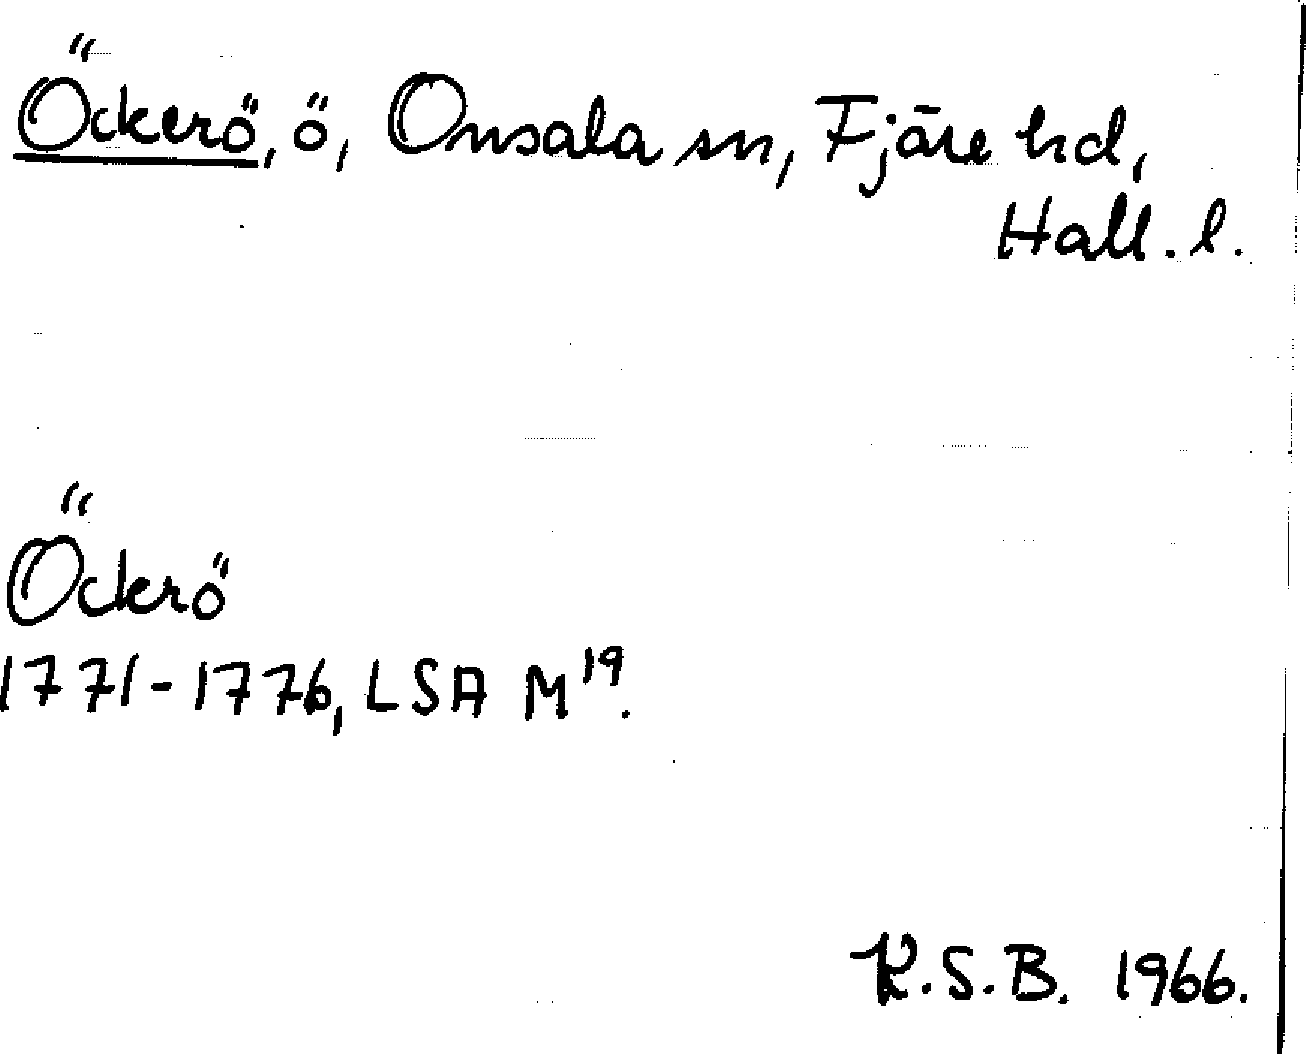 Öckerö, ö, Onsala sn, Fjäre hd,
Hall. l.
Öckerö
1771-1776, LSA M¹⁹.
K.S.B. 1966.